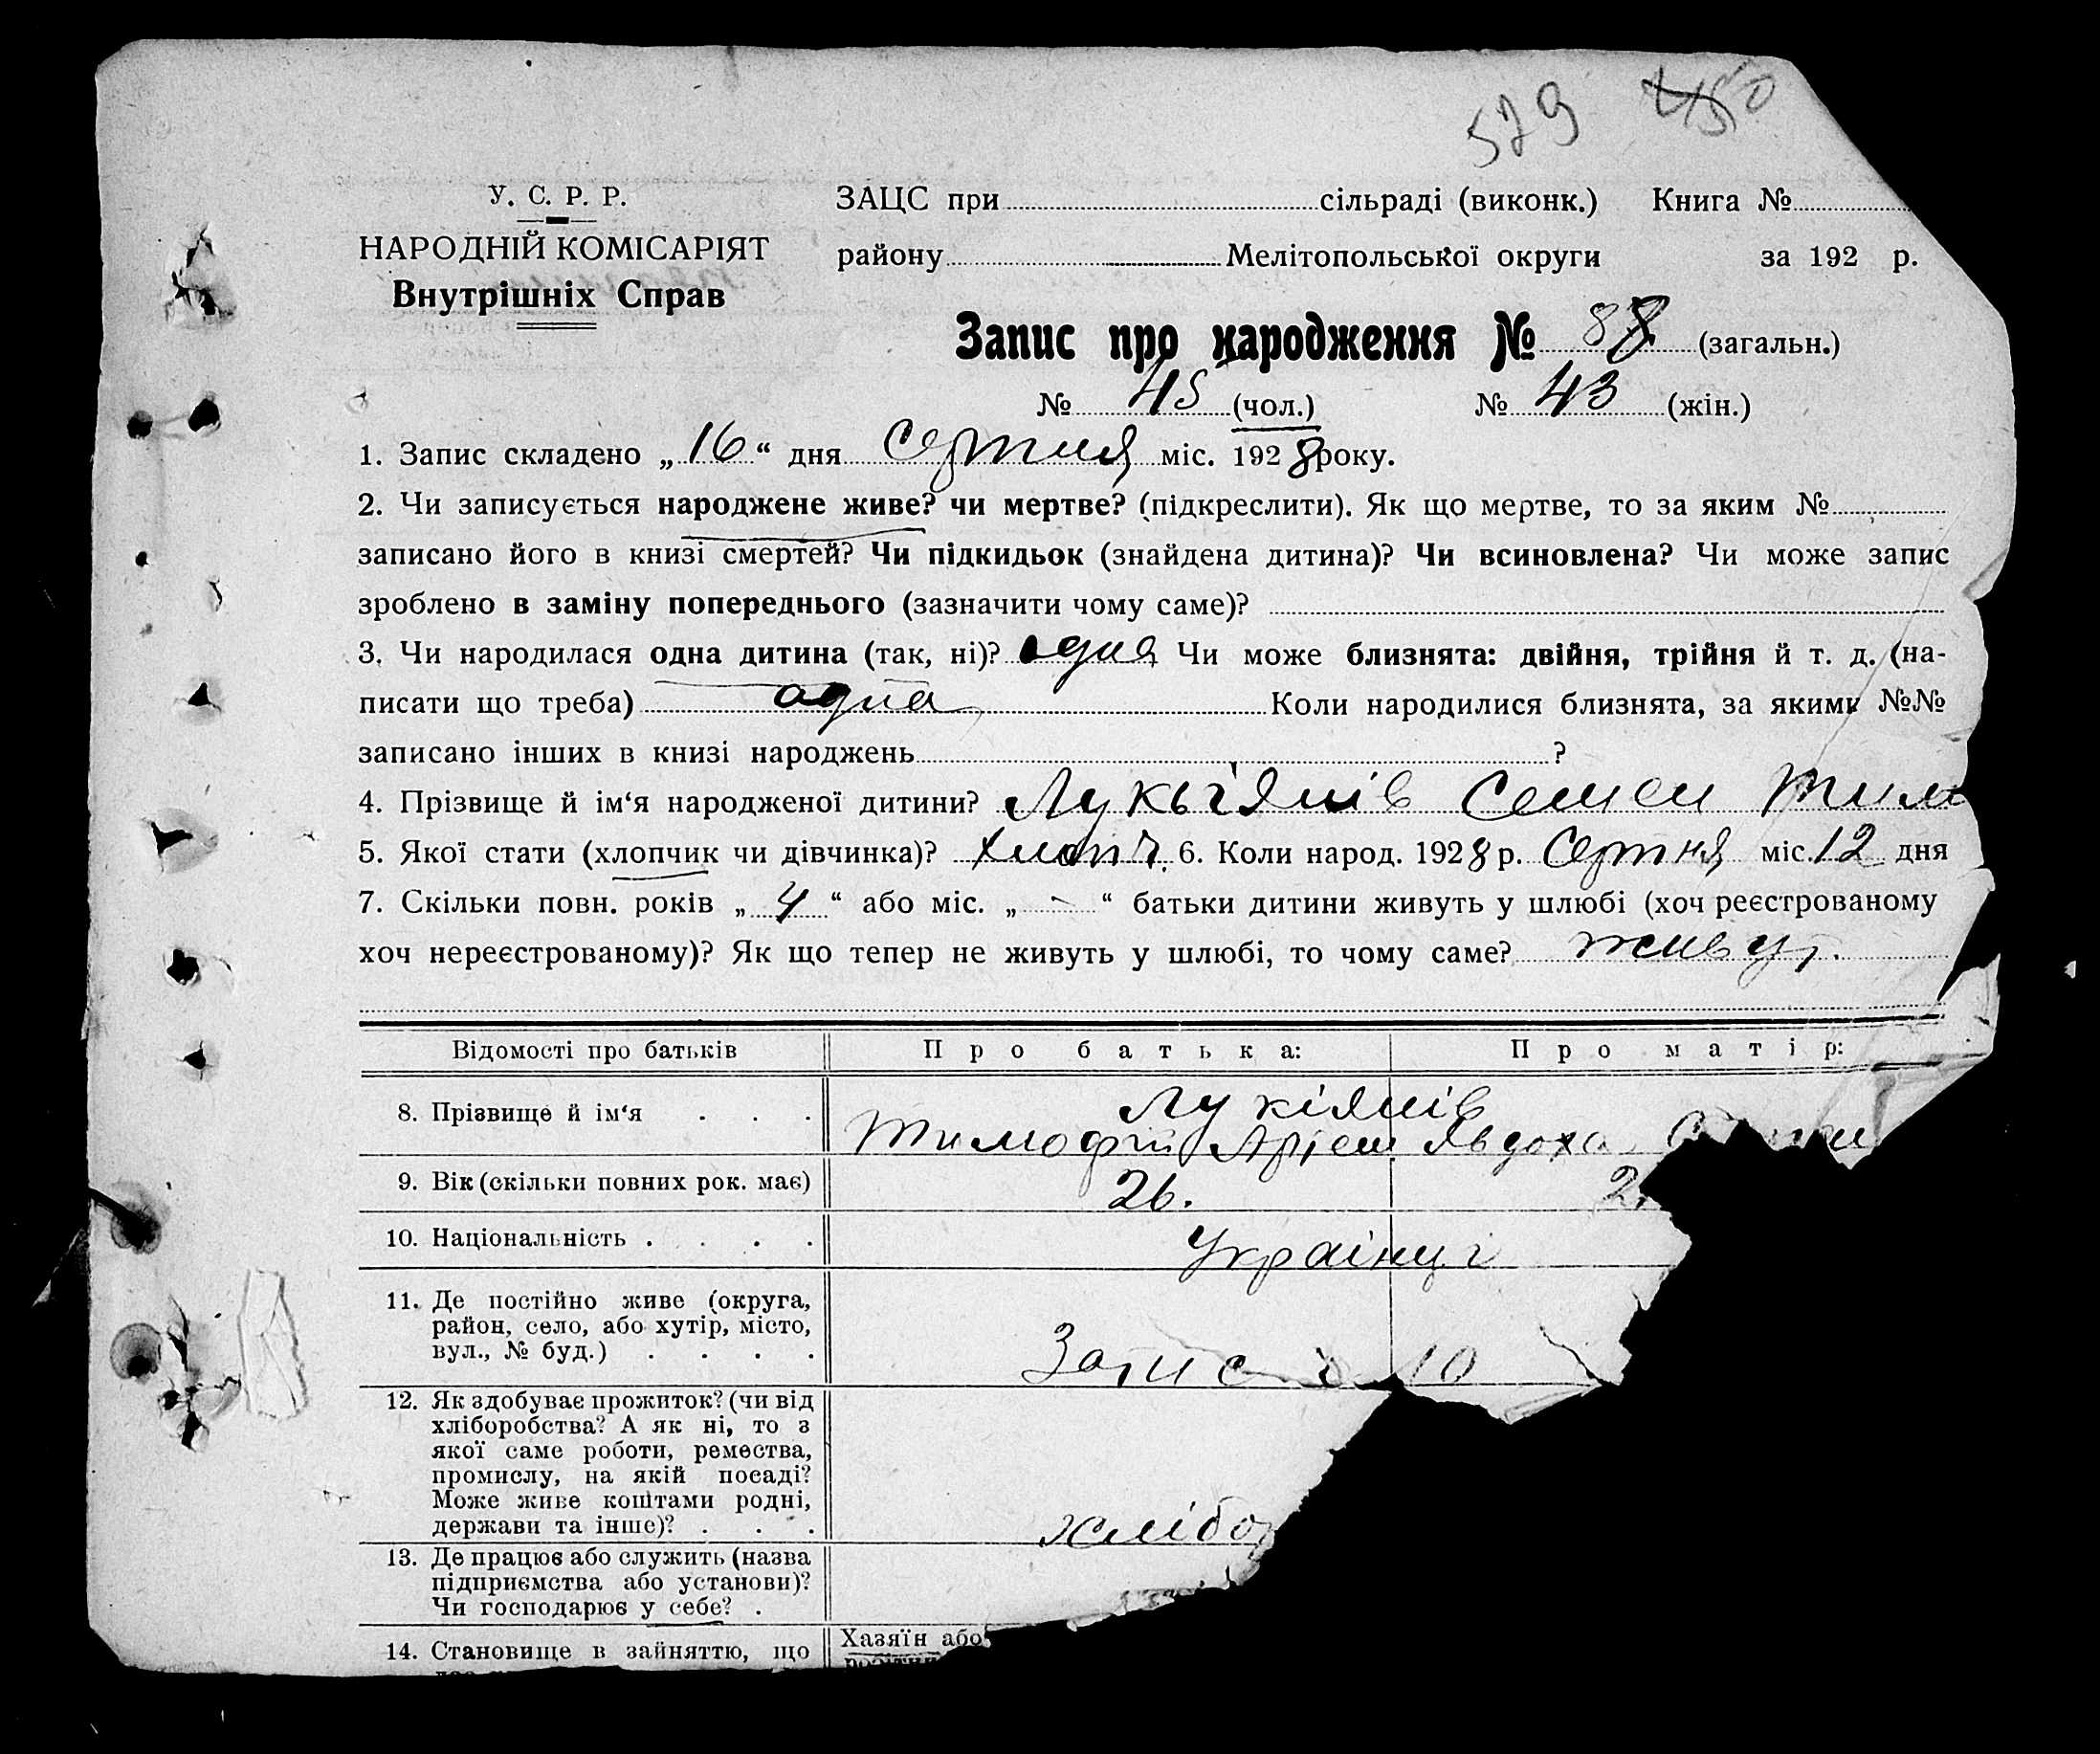 579 450
У. С. Р. Р.
НАРОДНІЙ КОМІСАРІЯТ
Внутрішніх Справ
ЗАЦС при сільраді (виконк.) Книга №
району Мелітопольської округи за 192 р.
Запис про народження № 88 (загальн.)
№ 45 (чол.) № 43 (жін.)
1. Запис складено „16“ дня Серпня міс. 1928 року.
2. Чи записується народжене живе? чи мертве? (підкреслити). Як що мертве, то за яким №
записано його в книзі смертей? Чи підкидьок (знайдена дитина)? Чи всиновлена? Чи може запис
зроблено в заміну попереднього (зазначити чому саме)?
3. Чи народилася одна дитина (так, ні)? одна Чи може близнята: двійня, трійня й т. д. (на-
писати що треба) одна Коли народилися близнята, за якими №№
записано інших в книзі народжень ?
4. Прізвище й ім‘я народженої дитини? Семен Тим
5. Якої стати (хлопчик чи дівчинка)? хлопч. 6. Коли народ. 1928 р. Серпня міс. 12 дня
7. Скільки повн. років „4“ або міс. „-“ батьки дитини живуть у шлюбі (хоч реєстрованому
хоч нереєстрованому)? Як що тепер не живуть у шлюбі, то чому саме? живут.
Відомості про батьків Про батька: Про матір:
8. Прізвище й ім‘я . . . Лукіянів
Тимофій Явдоха
9. Вік (скільки повних рок. має) 26. 2
10. Національність . . . . Українці
11. Де постійно живе (округа,
район, село, або хутір, місто,
вул., № буд.) . . . . 10
12. Як здобуває прожиток? (чи від
хліборобства? А як ні, то з
якої саме роботи, ремества,
промислу, на якій посаді?
Може живе коштами родні,
держави та інше)? . . . хлібо
13. Де працює або служить (назва
підприємства або установи)?
Чи господарює у себе? .
14. Становище в зайняттю, що Хазяїн або